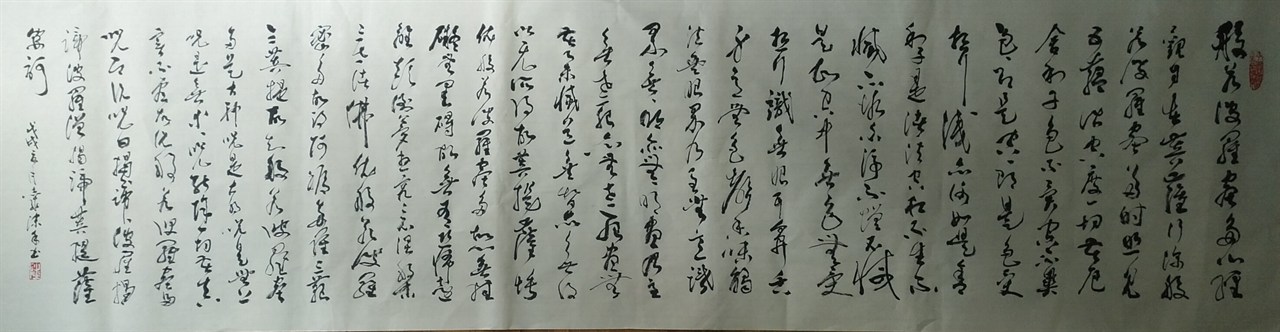 般若波羅蜜多心經
觀自在菩薩行深般
若波羅蜜多時照見
五蘊皆空度一切苦厄
舍利子色不異空空不異
色色即是空空即是色受
想行識亦復如是舍
利子是諸法空相不生不
滅不垢不淨不增不減
是故空中無色無受
想行識無眼耳鼻舌
身意無色聲香味觸
法無眼界乃至無意識
界無無明亦無無明盡乃至
無老死亦無老死盡無
苦集滅道無智亦無得
以無所得故菩提薩埵
依般若波羅蜜多故心無罣
礙無罣礙故無有恐怖遠
離顛倒夢想究竟涅槃
三世諸佛依般若波羅
蜜多故得阿耨多羅三藐
三菩提故知般若波羅蜜
多是大神咒是大明咒是無上
咒是無等等咒能除一切苦真
實不虛故說般若波羅蜜多
咒即說咒曰揭諦揭諦波羅揭
諦波羅僧揭諦菩提薩
婆訶